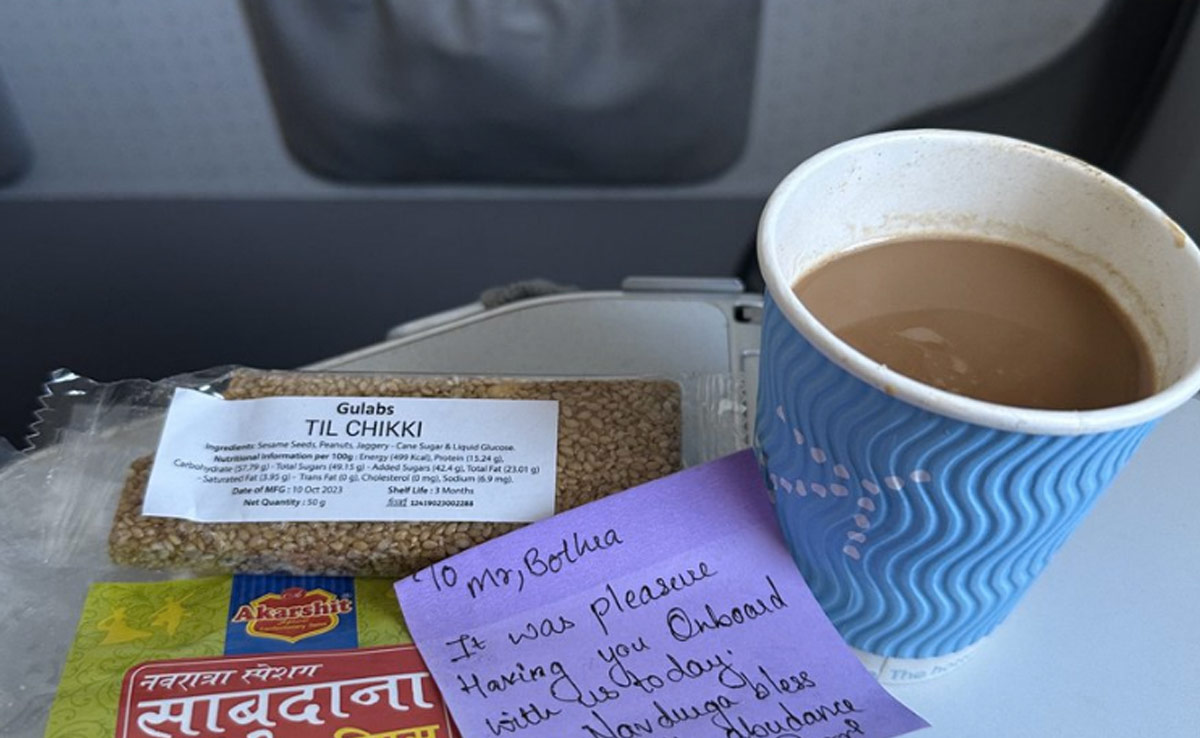 Gulabs
TIL CHIKKI
Ingredients: Sesame Seeds, Peanuts, Jaggery - Cane Sugar & Liquid Glucose.
Nutritional Information per 100g : Energy (499 Kcal), Protein (15.24 g),
Carbohydrate (57.79 g) - Total Sugars (49.15 g) - Added Sugars (42.4 g), Total Fat (23.01 g)
- Saturated Fat (3.95 g) - Trans Fat (0 g), Cholesterol (0 mg), Sodium (6.9 mg).
Date of MFG : 10 Oct 2023 Shelf Life : 3 Months
Net Quantity : 50 g fssai 12419023002288
Akarshit
नवरात्रा स्पेशल
साबूदाना
To Mr, Bothra
It was pleasure
Having you Onboard
with us today.
Navdurga bless
abundance
The